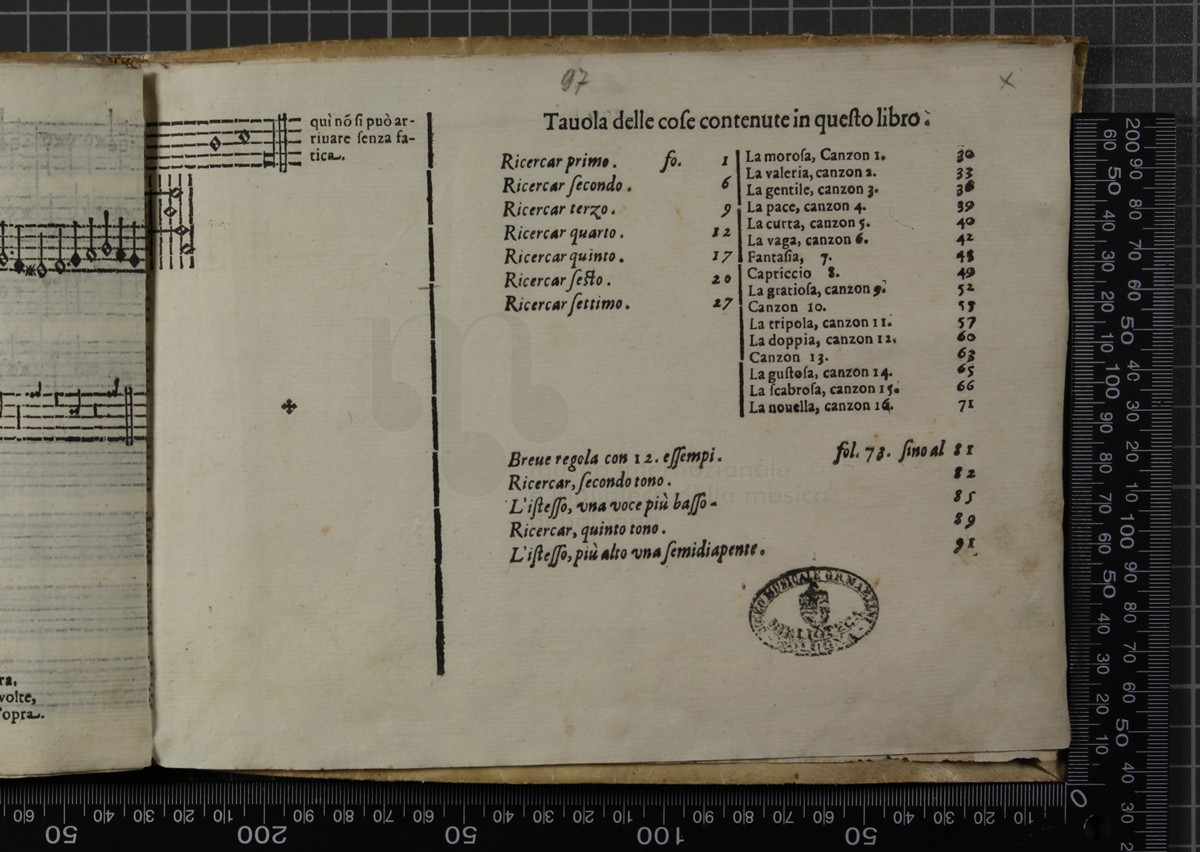 97
x
quì nõ ſi può ar-
riuare ſenza fa-
tica.
ra,
volte,
'opra.
Tauola delle coſe contenute in queſto libro.
Ricercar primo. fo. 1
Ricercar ſecondo. 6
Ricercar terzo. 9
Ricercar quarto. 12
Ricercar quinto. 17
Ricercar ſeſto. 20
Ricercar ſettimo. 27
La moroſa, Canzon 1. 30
La valeria, canzon 2. 33
La gentile, canzon 3. 36
La pace, canzon 4. 39
La curta, canzon 5. 40
La vaga, canzon 6. 42
Fantaſia, 7. 45
Capriccio 8. 49
La gratioſa, canzon 9. 52
Canzon 10. 55
La tripola, canzon 11. 57
La doppia, canzon 12. 60
Canzon 13. 63
La guſtoſa, canzon 14. 65
La ſcabroſa, canzon 15. 66
La nouella, canzon 16. 71
Breue regola con 12. eſſempi. fol. 73. ſino al 81
Ricercar, ſecondo tono. 82
L'iſteſſo, vna voce più baſſo- 85
Ricercar, quinto tono. 89
L'iſteſſo, più alto vna ſemidiapente. 91
LICEO MUSICALE G.B. MARTINI
BIBLIOTECA